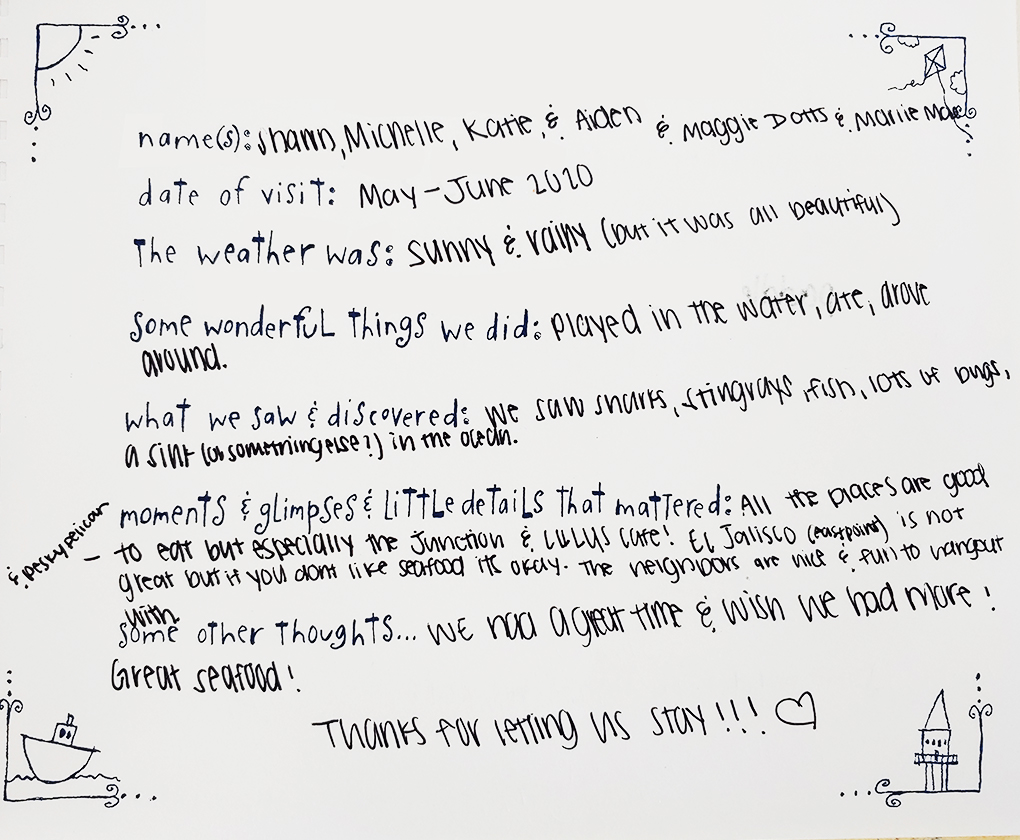 name(s): Shann, Michelle, Katie, & Aiden & Maggie Dotts & Marlie Mae
date of visit: May - June 2020
The weather was: sunny & rainy (but it was all beautiful)
some wonderful things we did: played in the water, ate, drove
around.
what we saw & discovered: we saw sharks, stingrays, fish, lots of bugs,
a sink (or something else?) in the ocean.
moments & glimpses & little details that mattered: All the places are good
& pesky pelican
- to eat but especially the Junction & LULUS cafe! El Jalisco (eastpoint) is not
great but if you dont like seafood its okay. The neighbors are nice & fun to hangout
with
some other thoughts... WE had a great time & wish we had more!
Great seafood!
Thanks for letting us stay!!! ♡